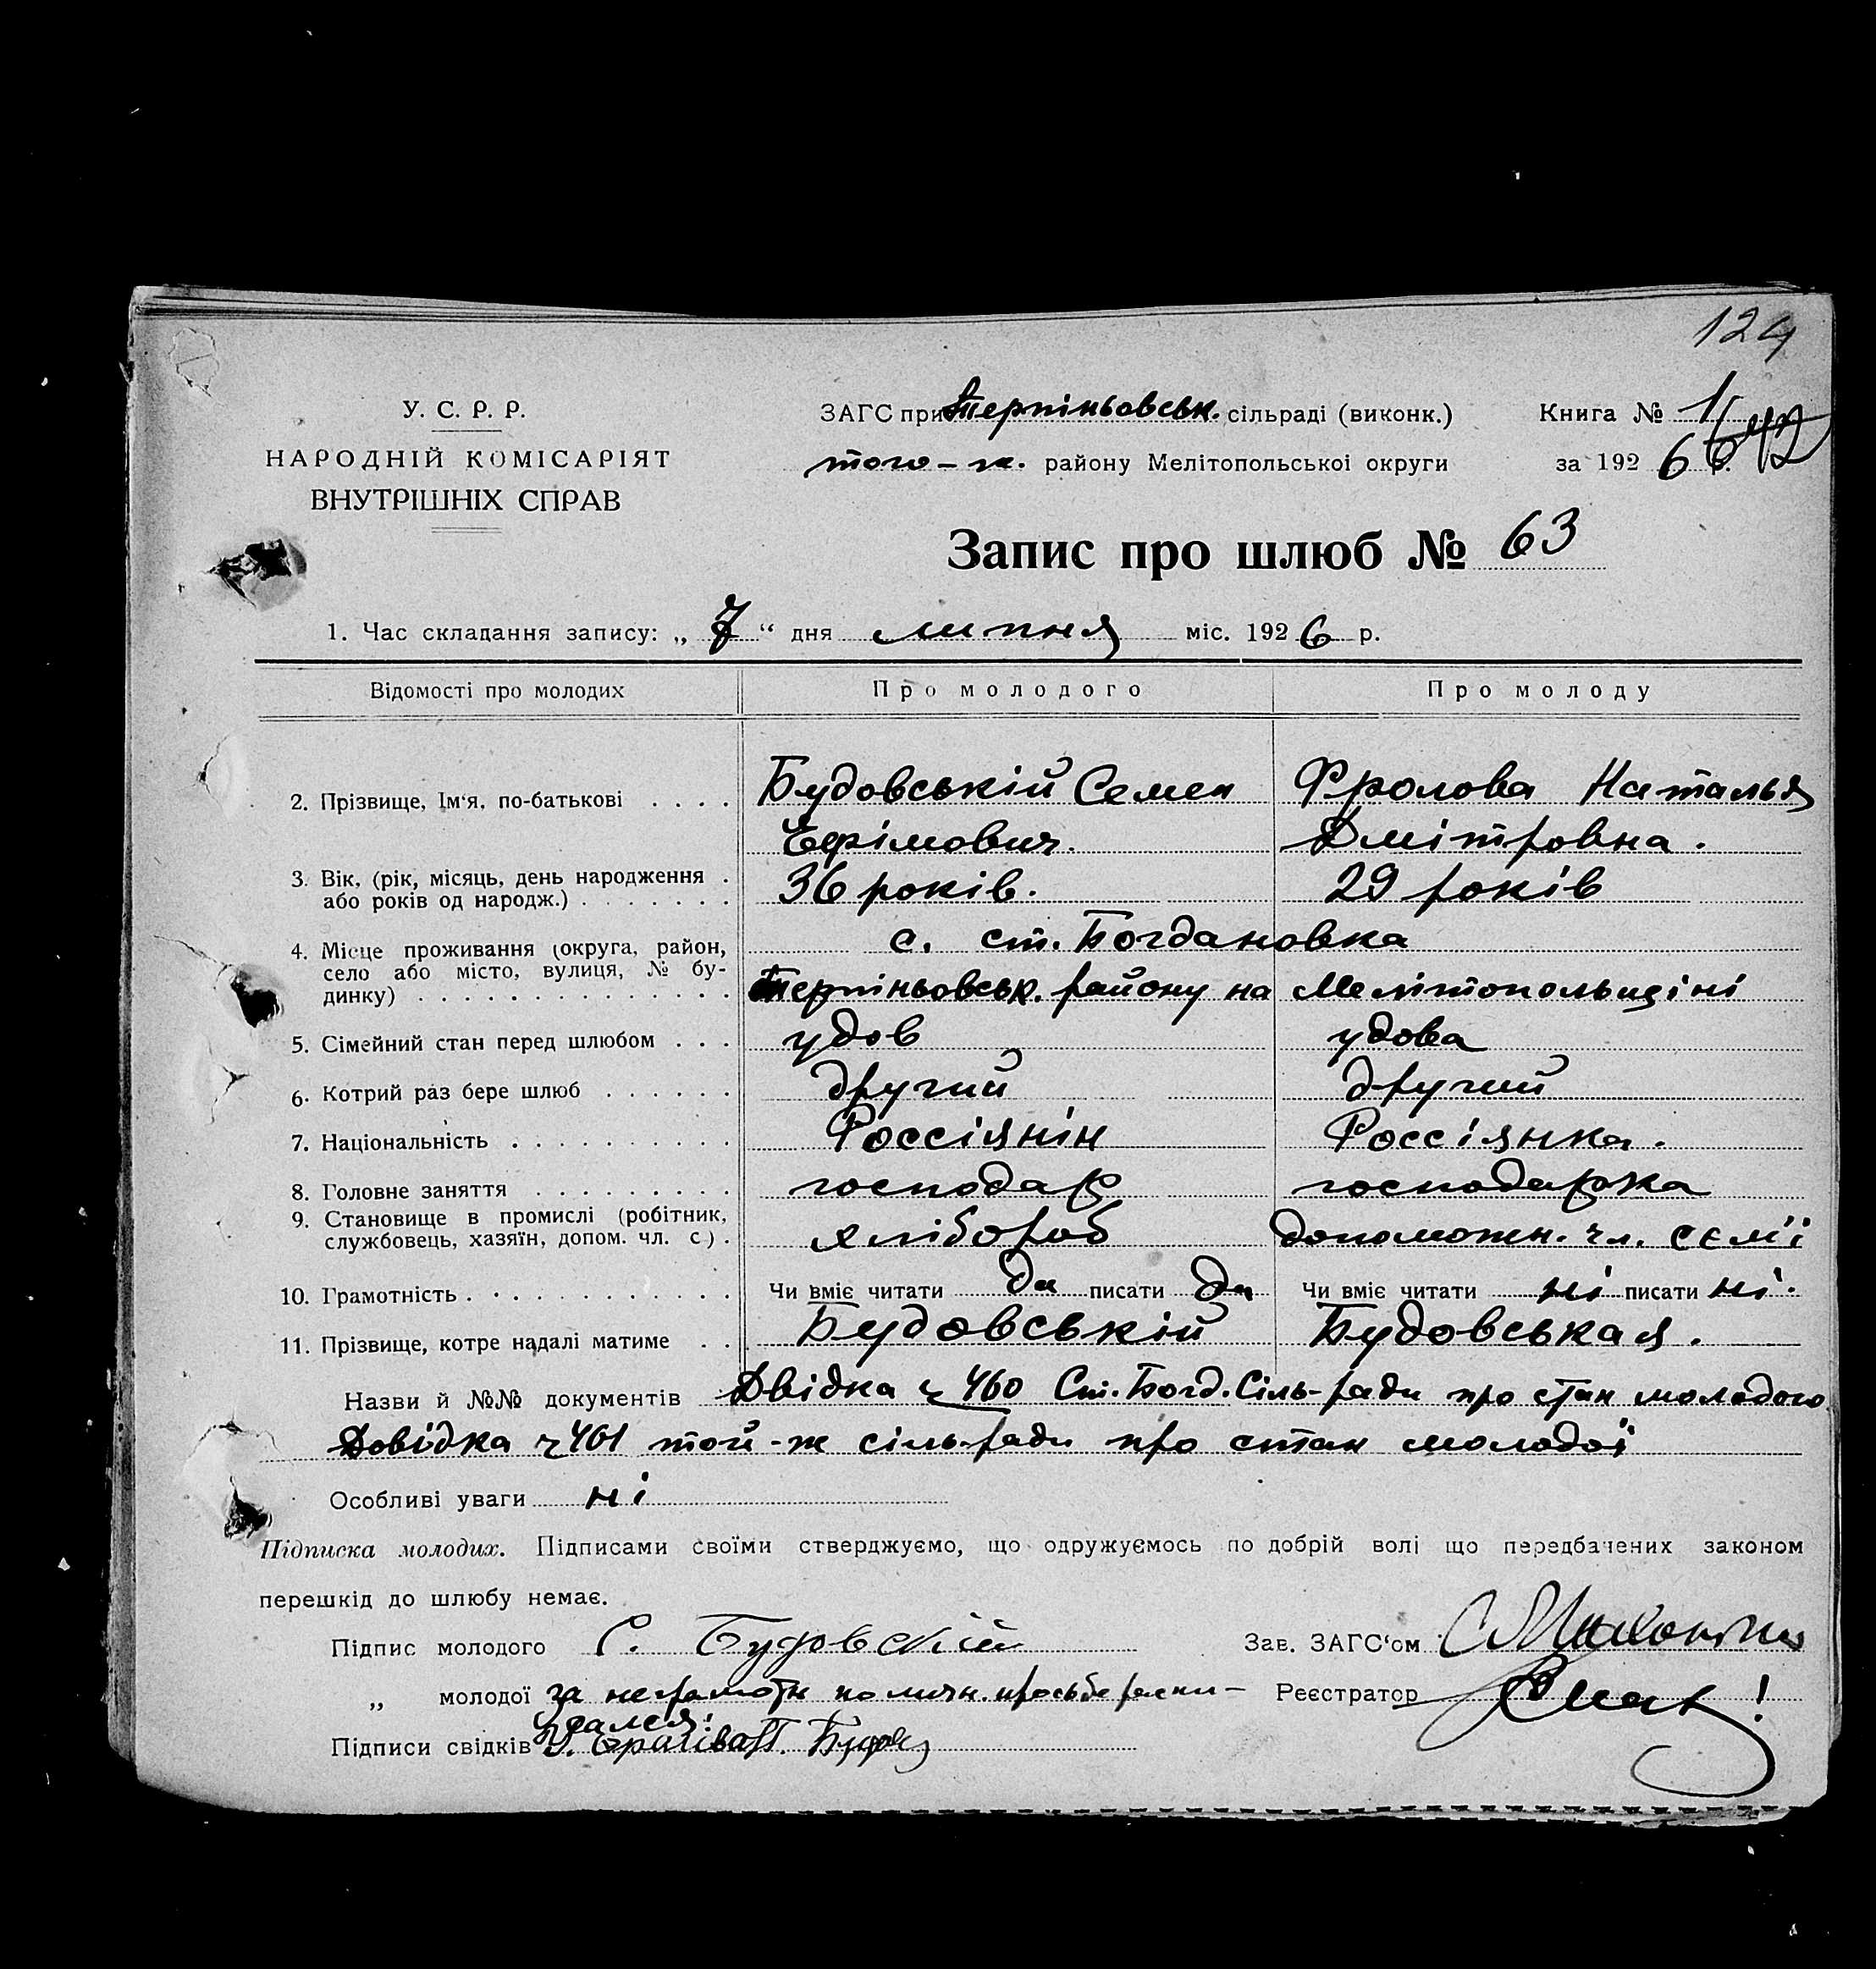 124
У. С. Р. Р.
НАРОДНІЙ КОМІСАРІЯТ
ВНУТРІШНІХ СПРАВ
ЗАГС при Терпіньовськ. сільраді (виконк.)
того-ж. району Мелітопольськоі округи
Книга № 1
за 1926 р.
642
Запис про шлюб № 63
1. Час складання запису: „ 7 “ дня липня міс. 1926 р.
Відомості про молодих Про молодого Про молоду
2. Прізвище, Ім‘я, по-батькові . . . . Будовській Семен Фролова Наталья
Ефімович. Дмітровна.
3. Вік, (рік, місяць, день народження . 36 років. 29 років
або років од народж.) . . . . . . .
4. Місце проживання (округа, район, с. ст. Богдановка
село або місто, вулиця, № бу-
динку) . . . . . . . . . . . . . . Терпіньовськ. району на Мелітопольщіні
5. Сімейний стан перед шлюбом . . . удов удова
6. Котрий раз бере шлюб . . . . . . другий другий
7. Національність . . . . . . . . . . Россіянін Россіянка.
8. Головне заняття . . . . . . . . . господар господарка
9. Становище в промислі (робітник,
службовець, хазяїн, допом. чл. с.) . хлібороб допоможн. чл. сем'ї
10. Грамотність . . . . . . . . . . . . Чи вміє читати да писати да Чи вміє читати ні писати ні.
11. Прізвище, котре надалі матиме . . . Будовській Будовськая.
Назви й №№ документів Двідка ч 460 Ст. Богд. Сіль-ради про стан молодого
Довідка ч 461 той-ж сіль-ради про стан молодої
Особливі уваги ні
Підписка молодих. Підписами своїми стверджуємо, що одружуємось по добрій волі що передбачених законом
перешкід до шлюбу немає.
Підпис молодого С. Будовский Зав. ЗАГС‘ом
„ молодої за неграмотн по личн. просьбе распи- Реєстратор
сался:
Підписи свідків